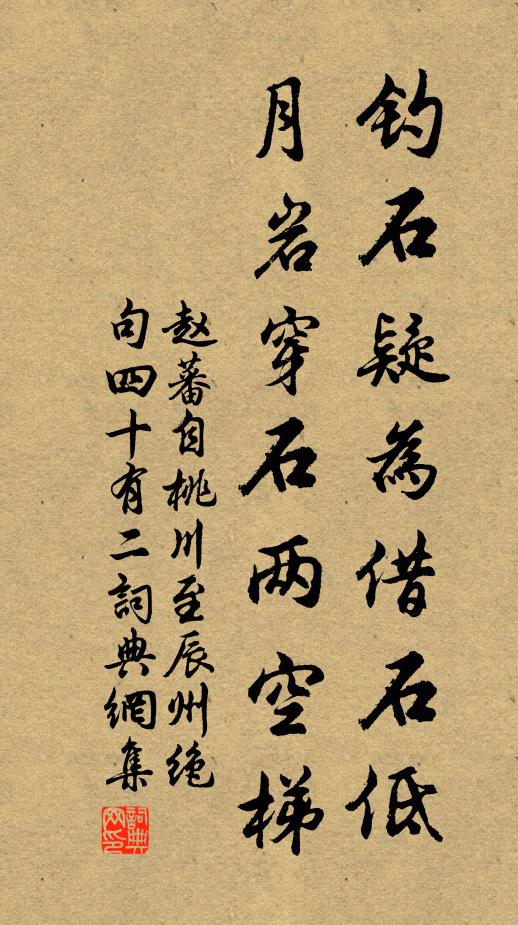 钓石疑為借石低
月岩穿石两空梯
赵蕃自桃川至辰州绝
句四十有二詞典網集
詞典
网印